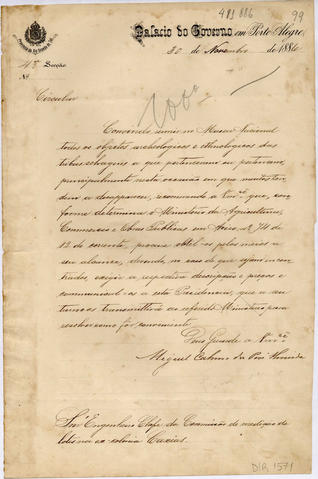 481 886
99
Palacio do Governo em Porto Alegre,
30 de Novembro de 1886
4ª Secção
Nº
Circular
1000
Convindo reunir no Museu Nacional
todos os objetos archeologicos e ethnologicos das
tribus selvagens a que pertenceram ou pertencem,
principalmente nesta occasião em que muitos ten
dem a desapparecer, recommendo a Vmcê que, con
forme determinou o Ministerio da Agricultura,
Commercio e Obras Publicas em Aviso nº 74 de
12 do corrente, procure obtel-os pelos meios a
seu alcance, devendo, no caso de que sejam encon
trados, exigir a respectiva descripção e preços e
communical-os a esta Presidencia, que a seu
turno os transmittirá ao referido Ministerio para
resolver como fôr conveniente.
Deus Guarde a Vmcê
Miguel Calmon du Pin e Almeida
Snr. Engenheiro Chefe da Commissão de medição de
lotes na ex-colonia Caxias.
DIR 1571